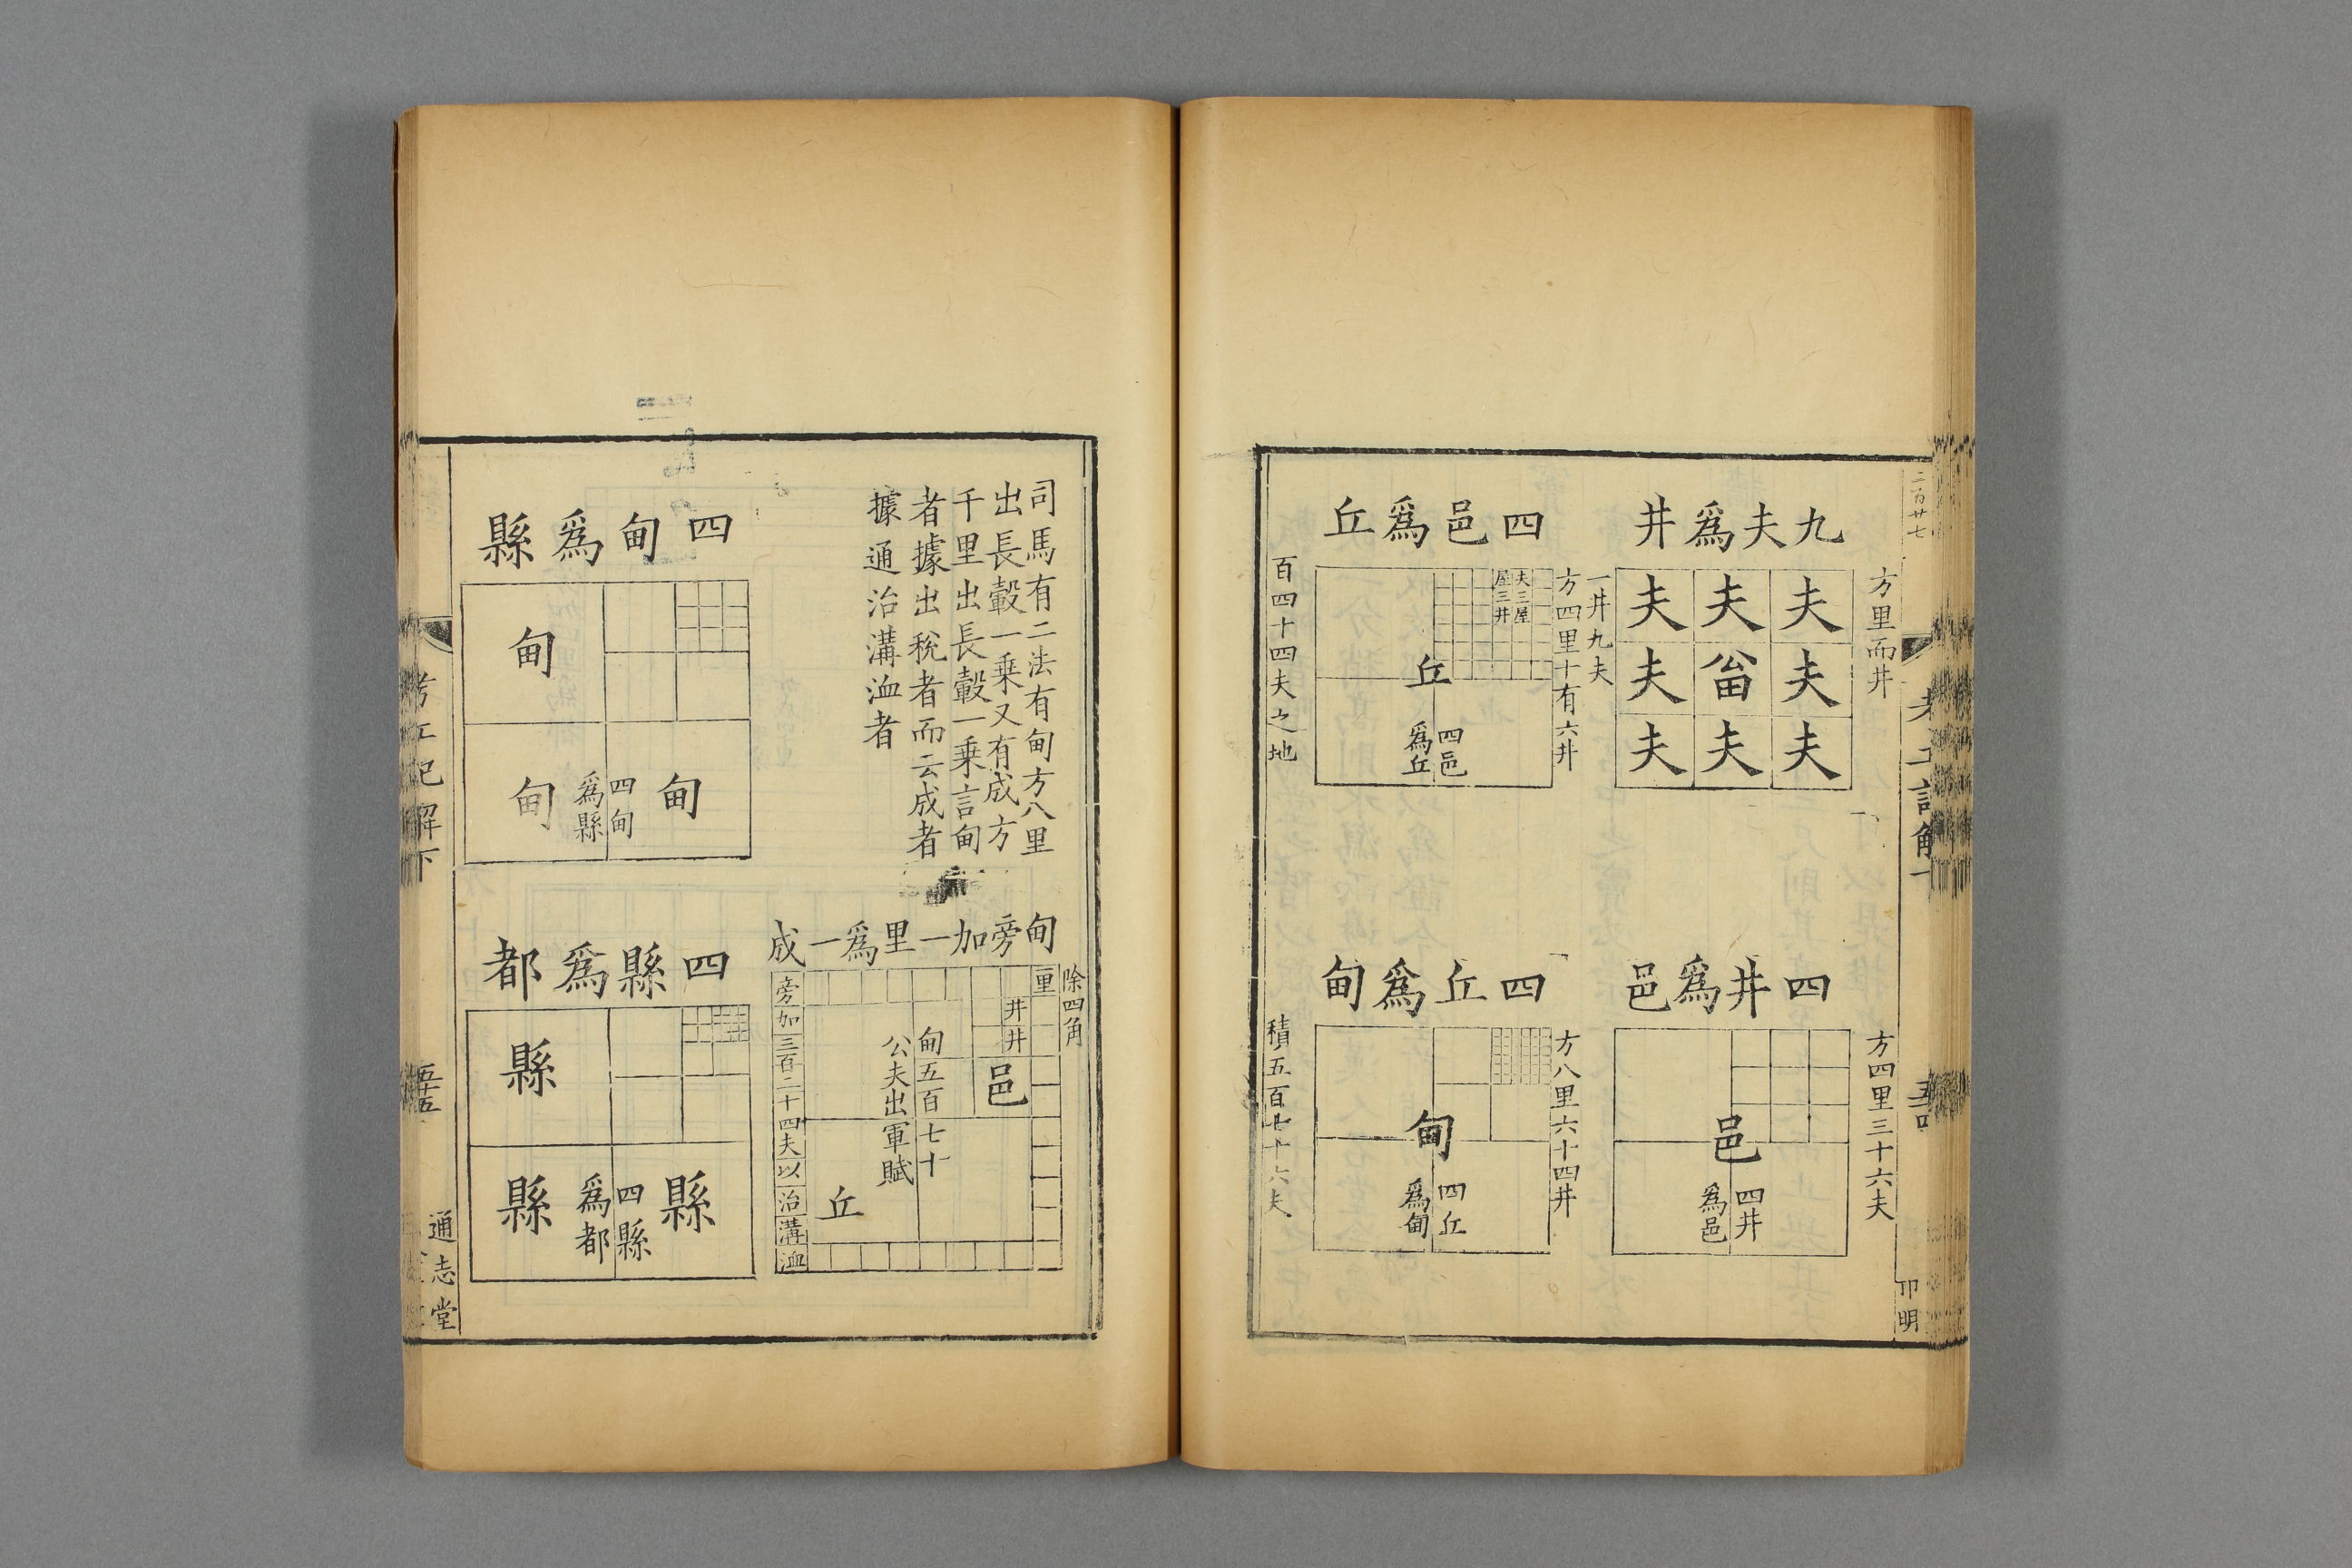 二百廿七
九夫爲井
方里而井
夫夫夫
夫畨夫
夫夫夫
一井九夫
四邑爲丘
方四里十有六井
夫三屋
屋三井
丘
四邑
爲丘
百四十四夫之地
四井爲邑
方四里三十六夫
邑
四井
爲邑
四丘爲甸
方八里六十四井
甸
四丘
爲甸
積五百七十六夫
卭明
司馬有二法有甸方八里
出長轂一乗又有成方
千里出長轂一乗言甸
者據出稅者而云成者
據通治溝洫者
甸旁加一里爲一成
除四角
里
井井
邑
甸五百七十
公夫出軍賦
丘
旁加三百二十四夫以治溝洫
四甸爲縣
甸
甸
四甸
爲縣
甸
四縣爲都
縣
縣
四縣
爲都
縣
考工記解下
五十五
通志堂